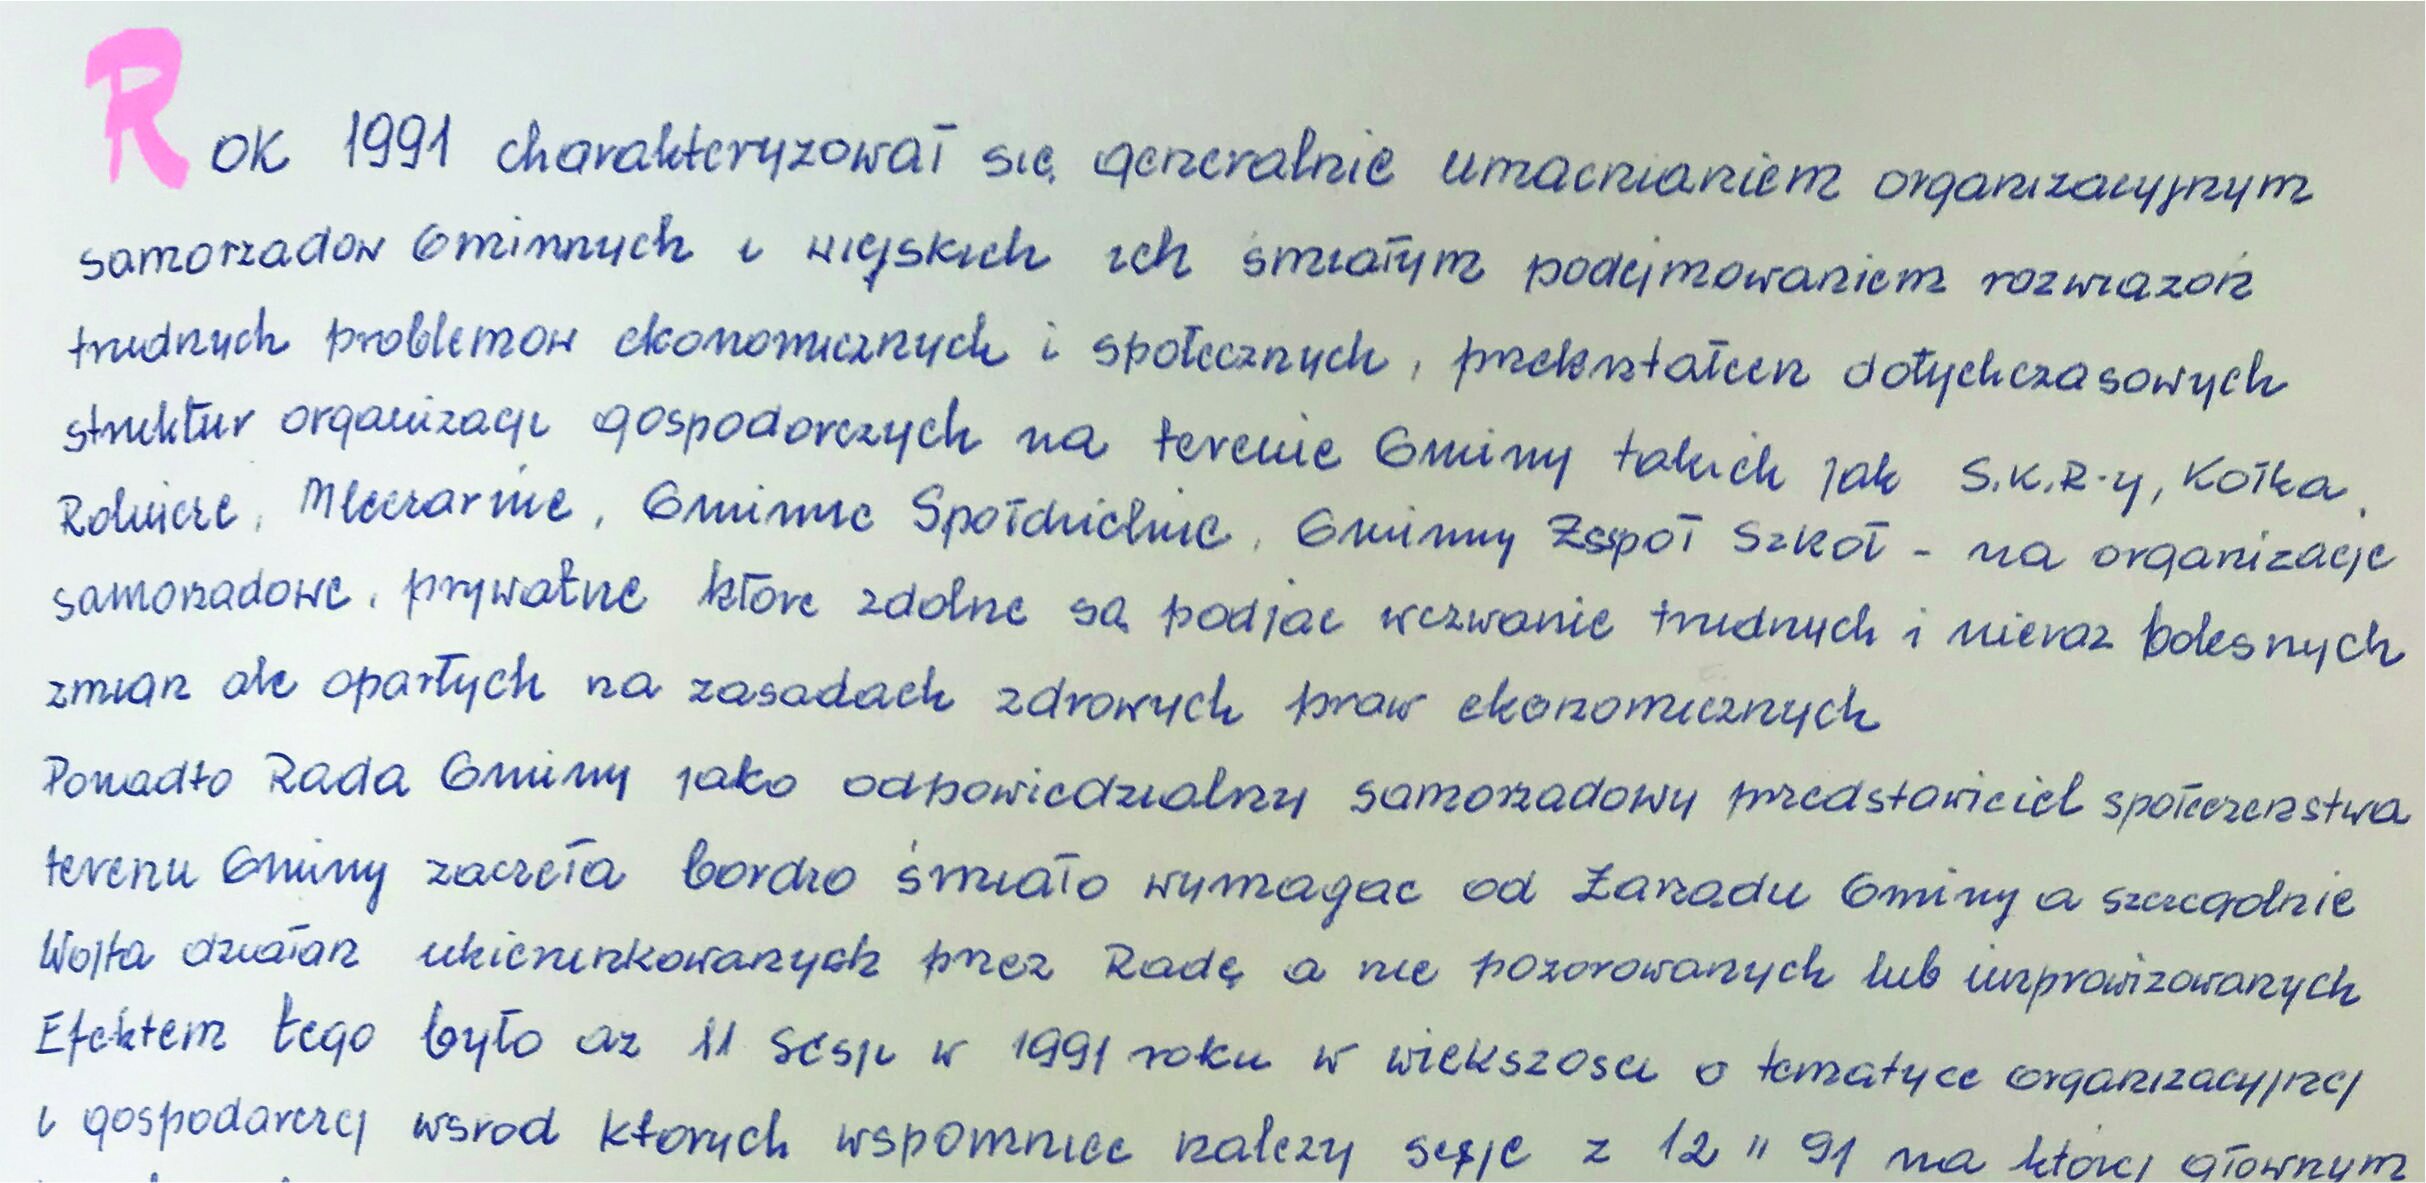 Rok 1991 charakteryzował się generalnie umacnianiem organizacyjnym
samorzadow Gminnych i wiejskich ich śmiałym podejmowaniem rozwiazań
trudnych problemow ekonomicznych i społecznych, przekształcen dotychczasowych
struktur organizacji gospodarczych na terenie Gminy takich jak S.K.R-y, Kołka
Rolnicze, Mleczarnie, Gminne Społdzielnie, Gminny Zespoł Szkoł - na organizacje
samorzadowe, prywatne ktore zdolne są podjac wezwanie trudnych i nieraz bolesnych
zmian ale opartych na zasadach zdrowych praw ekonomicznych
Ponadto Rada Gminy jako odpowiedzialny samorzadowy przedstawiciel społeczenstwa
terenu Gminy zaczeła bardzo śmiało wymagac od Zarzadu Gminy a szczegolnie
Wojta działan ukierunkowanych przez Radę a nie pozorowanych lub improwizowanych
Efektem tego było az 11 Sesji w 1991 roku w wiekszosci o tematyce organizacyjnej
i gospodarczej wsrod ktorych wspomniec nalezy sesje z 12 II 91 na ktorej głownym